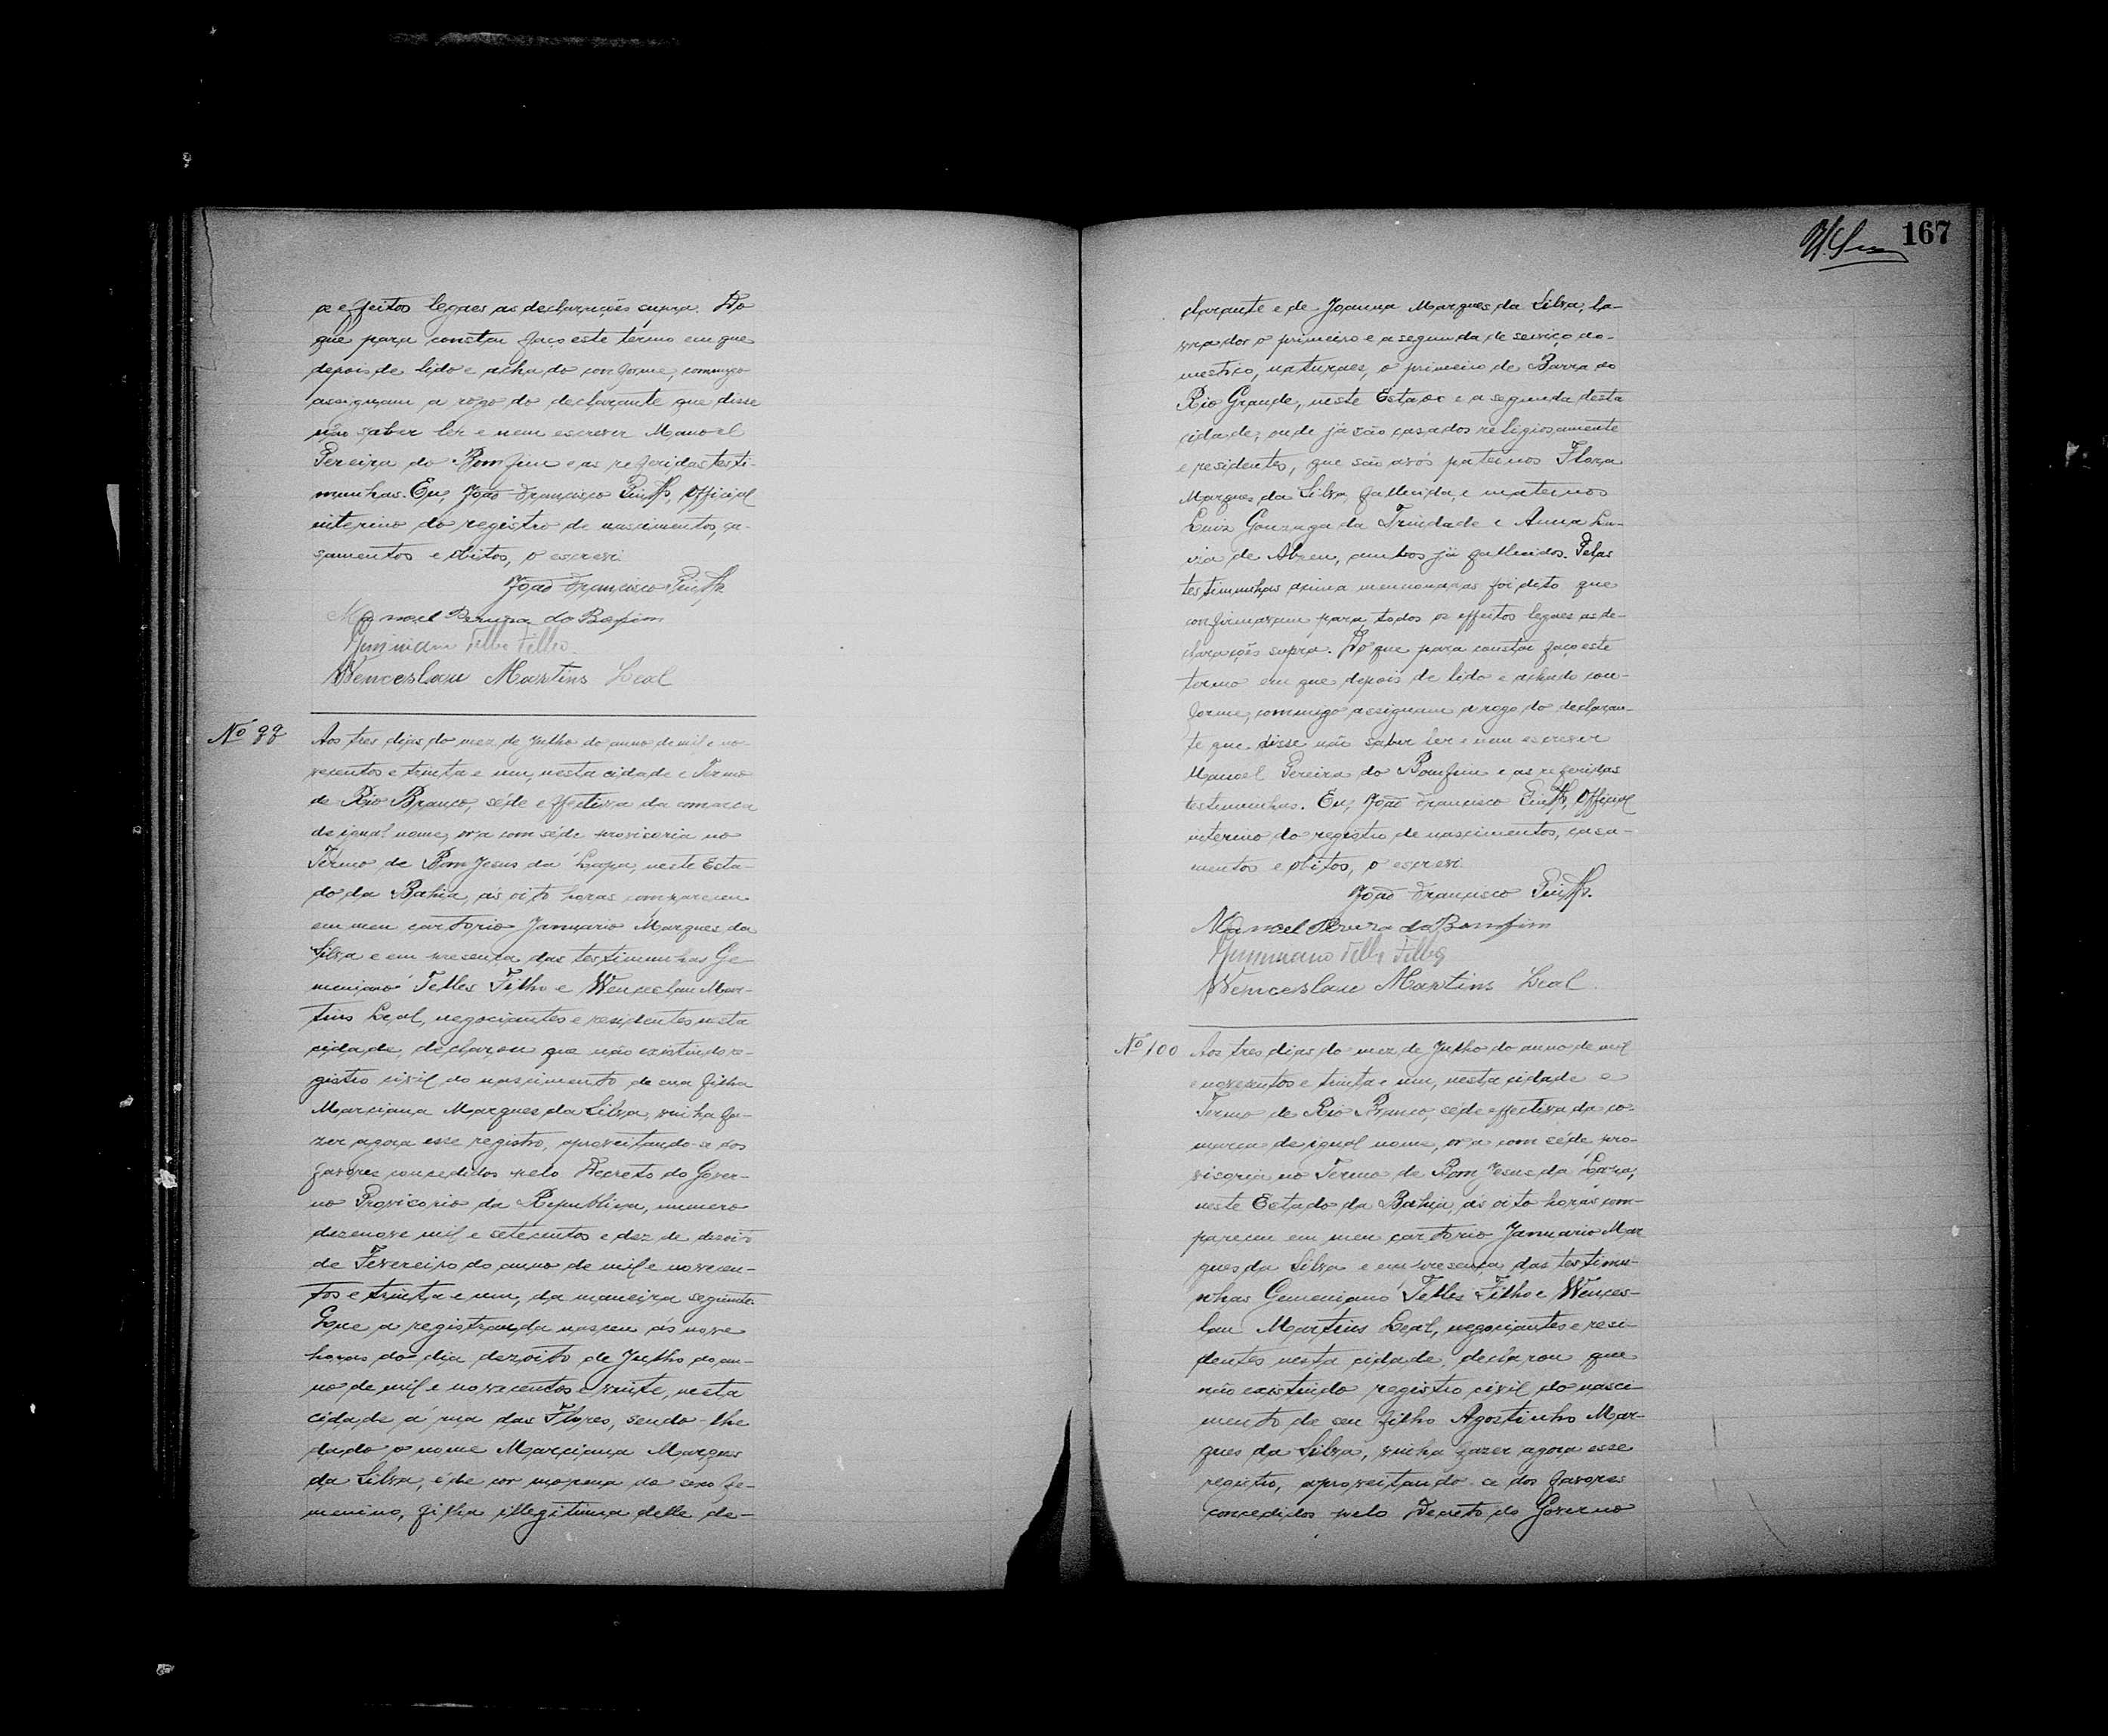 os effeitos legaes as declarações supra. Do
que para constar faço este termo em que
depois de lido e achado conforme, commigo
assignam a rogo do declarante que disse
não saber ler e nem escrever Manoel
Pereira do Bomfim e as referidas testi-
munhas. Eu, João Francisco Official
interino do registro de nascimentos, ca-
samentos e obitos, o escrevi.
João Francisco
Manoel Pereira do Bomfim
Telles Filho
Wenceslau Martins Leal
Nº 99 Aos tres dias do mez de Julho do anno de mil e no-
vecentos e trinta e um, nesta cidade e Termo
de Rio Branco, séde effectiva da comarca
de igual nome, ora com séde provisoria no
Termo de Bom Jesus da Lapa, neste Esta-
do da Bahia, ás oito horas compareceu
em meu cartorio Januario Marques da
Silva e em presença das testimunhas Ge-
meniano Telles Filho e Wenceslau Mar-
tins Leal, negociantes e residentes nesta
cidade, declarou que não existindo re-
gistro civil do nascimento de sua filha
Marciana Marques da Silva, vinha fa-
zer agora esse registro, aproveitando-se dos
favores concedidos pelo Decreto do Gover-
no Provisorio da Republica, numero
dezenove mil e setecentos e dez de dezoito
de Fevereiro do anno de mil e novecen-
tos e trinta e um, da maneira seguinte:
Que a registranda nasceu ás nove
horas do dia dezoito de Julho do an-
no de mil e novecentos e vinte, nesta
cidade á rua das Flores, sendo-lhe
dado o nome Marciana Marques
da Silva, é de cor morena do sexo fe-
menino, filha illegitima delle de-
167
clarante e de Joanna Marques da Silva, la-
vrador o primeiro e a segunda de serviço do-
mestico, naturaes, o primeiro de Barra do
Rio Grande, neste Estado e a segunda desta
cidade, onde já são casados religiosamente
e residentes, que são avós paternos Flora
Marques da Silva, fallecida, e maternos
Luiz Gonzaga da Trindade e Anna
de Abreu, ambos já fallecidos. Pelas
testimunhas acima mencionadas foi dito que
confirmavam para todos os effeitos legaes as de-
clarações supra. Do que para constar faço este
termo em que depois de lido e achado con-
forme, commigo assignam a rogo do declaran-
te que disse não saber ler e nem escrever
Manoel Pereira do Bomfim e as referidas
testimunhas. Eu, João Francisco Official
interino do registro de nascimentos, casa-
mentos e obitos, o escrevi.
João Francisco
Manoel Pereira do Bomfim
Telles Filho
Wenceslau Martins Leal.
Nº 100 Aos tres dias do mez de Julho do anno de mil
e novecentos e trinta e um, nesta cidade e
Termo de Rio Branco, séde effectiva da co-
marca de igual nome, ora com séde pro-
visoria no Termo de Bom Jesus da Lapa,
neste Estado da Bahia, ás oito horas com-
pareceu em meu cartorio Januario Mar
ques da Silva e em presença das testimu-
nhas Gemeniano Telles Filho e Wences-
lau Martins Leal, negociantes e resi-
dentes nesta cidade, declarou que
não existindo registro civil do nasci-
mento de seu filho Agostinho Mar-
ques da Silva, vinha fazer agora esse
registro, aproveitando-se dos favores
concedidos pelo Decreto do Governo